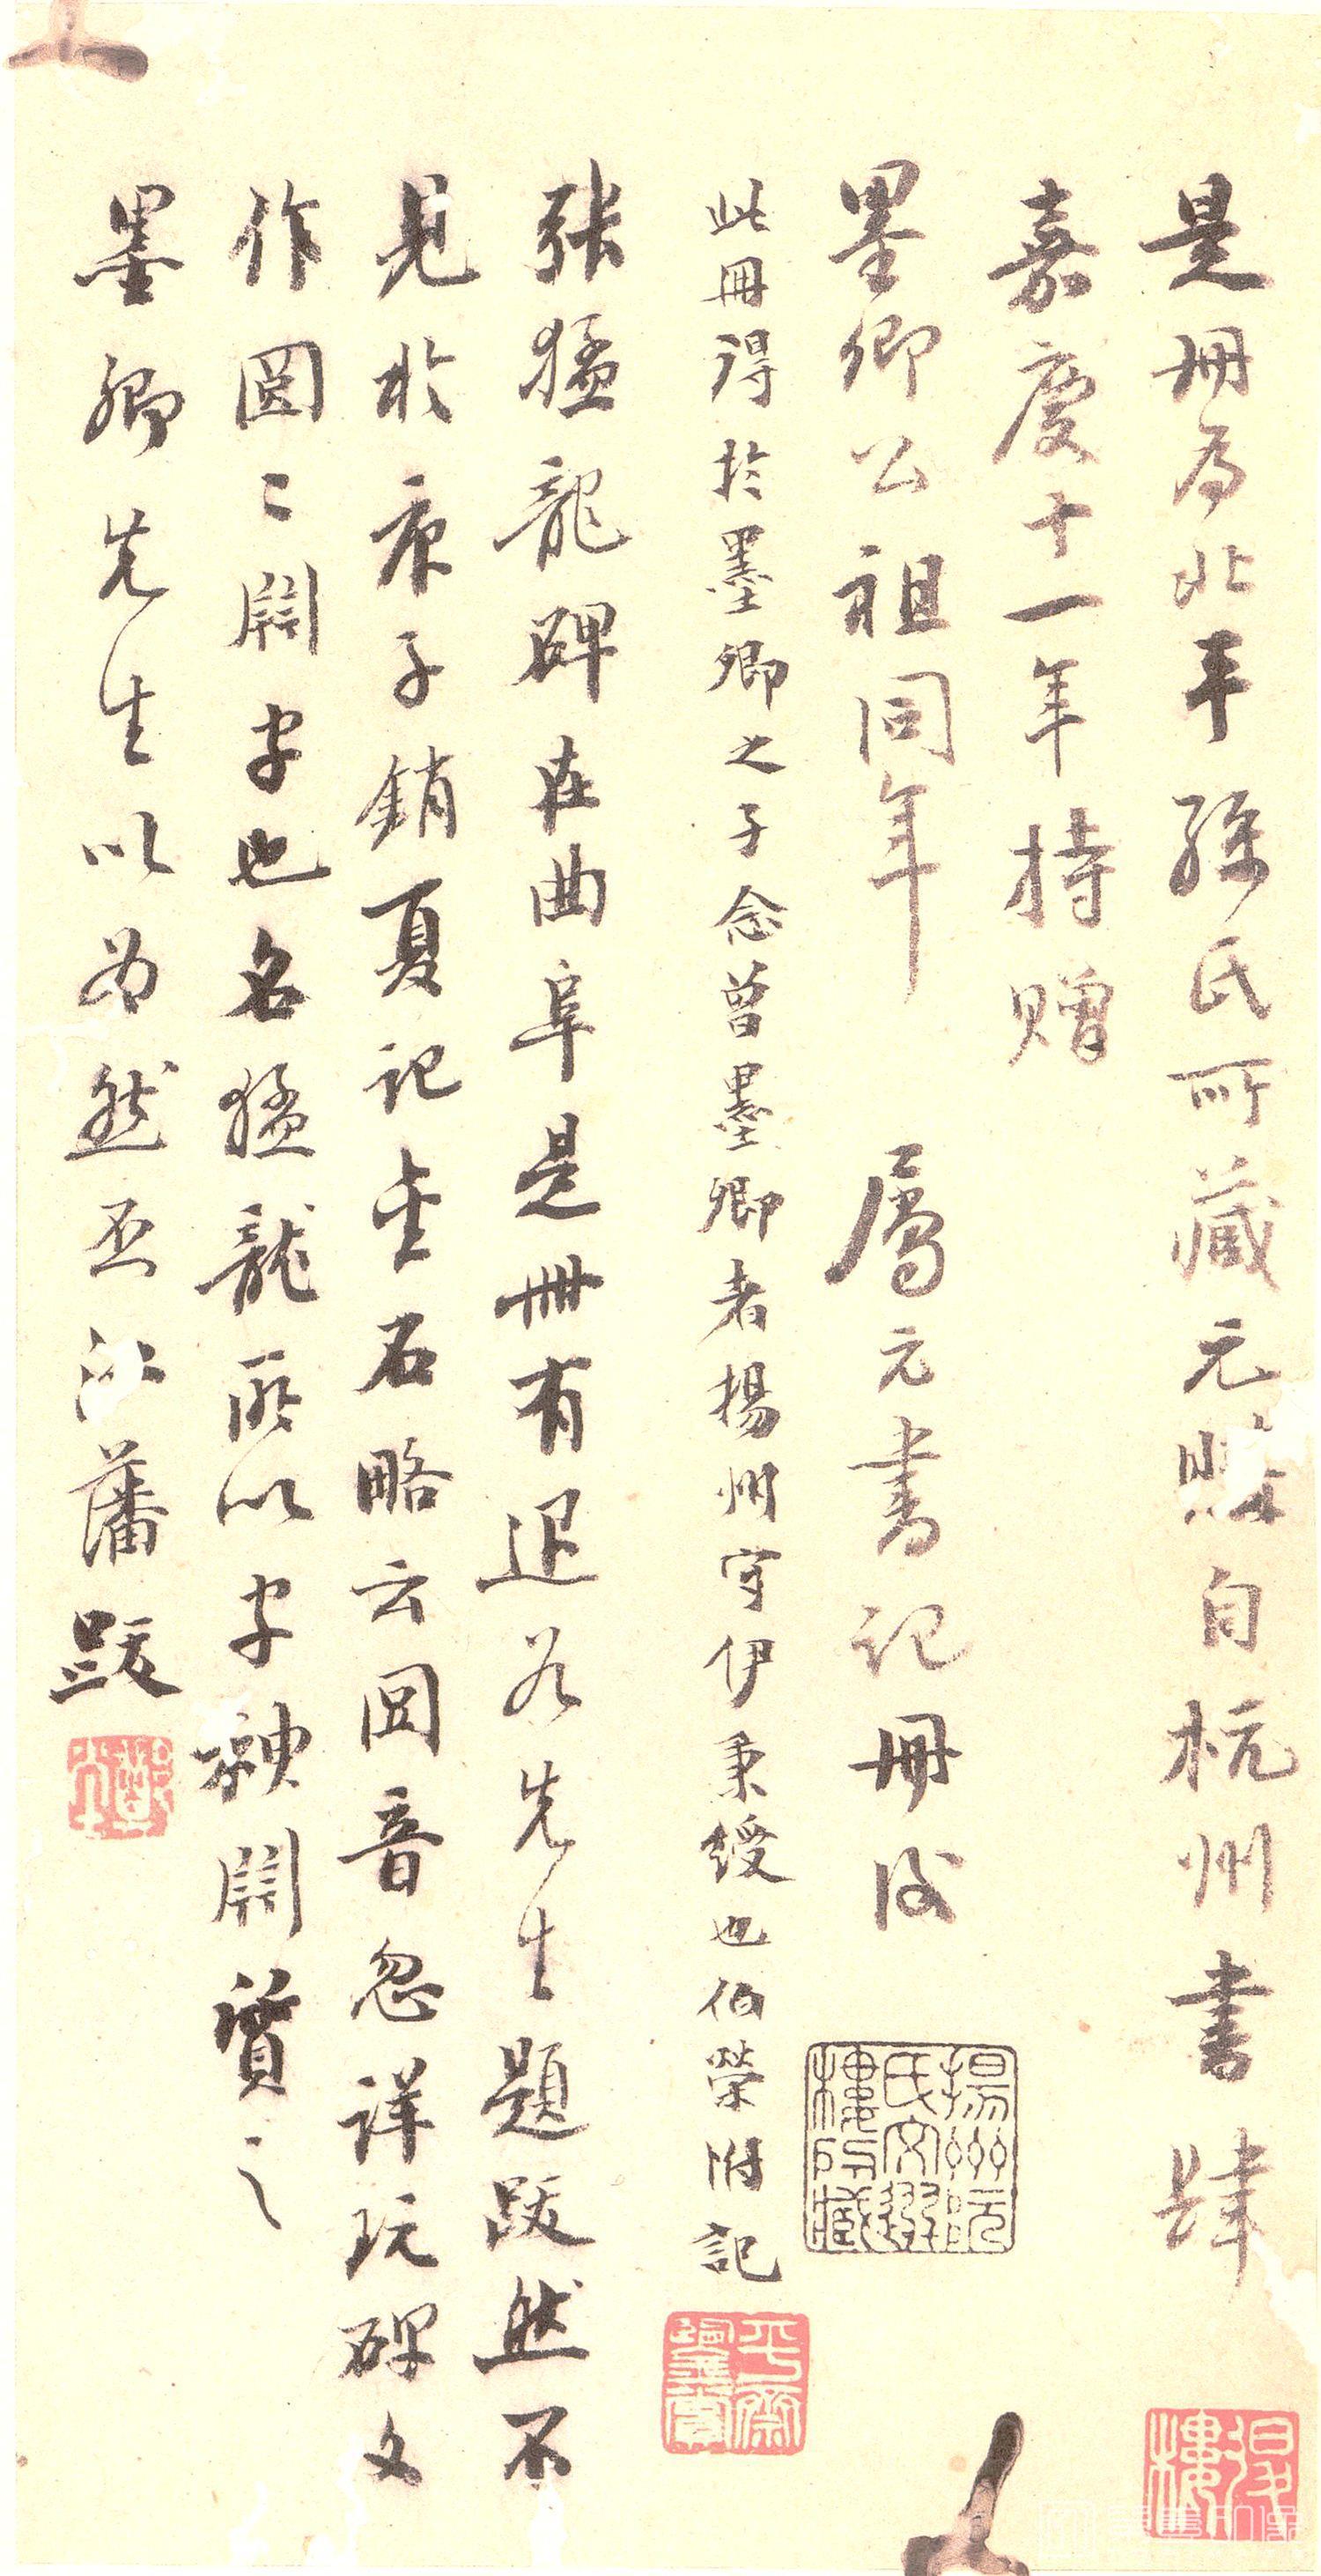 是冊為北平孫氏所藏元購自杭州書肆
嘉慶十一年持贈
墨卿公祖同年 屬元書記冊後
揚州阮氏文選樓所藏
此冊得於墨卿之子念曾墨卿者揚州守伊秉綬也伯榮附記
張猛龍碑在曲阜是冊有退谷先生題跋然不
見於庚子銷夏記金石略云圀音忽詳玩碑文
作圀圀闢字也名猛龍所以字神闢質之
墨卿先生以為然否江藩跋